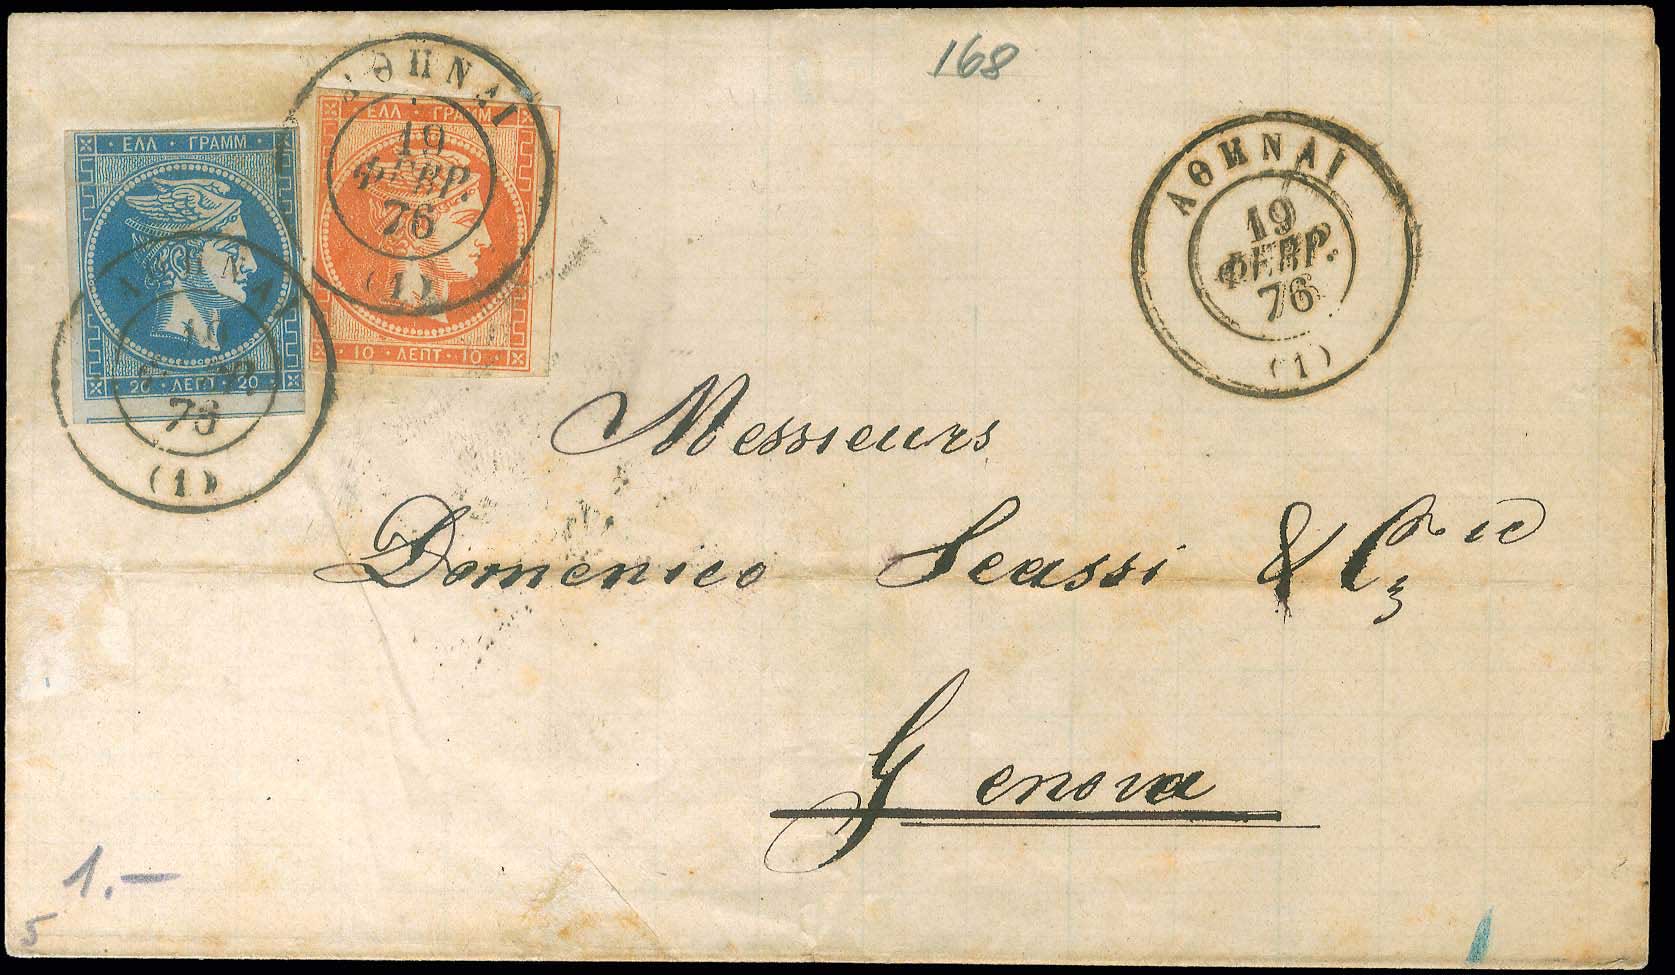 168
ΕΛΛ · ΓΡΑΜΜ
20 · ΛΕΠΤ · 20
76
(1)
ΑΘΗΝΑΙ
ΕΛΛ · ΓΡΑΜΜ
19
ΦΕΒΡ.
76
(1)
10 · ΛΕΠΤ · 10
ΑΘΗΝΑΙ
19
ΦΕΒΡ.
76
(1)
Messieurs
Domenico Scassi & Cie
Genova
1.—
5